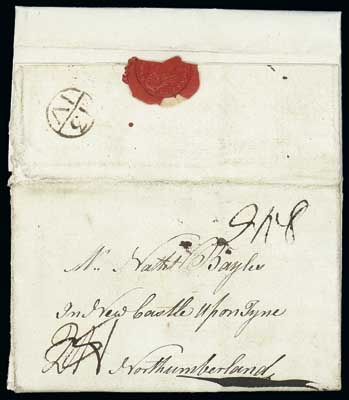 Mr. Nathl Bayles
In New Castle Upon Tyne
Northumberland